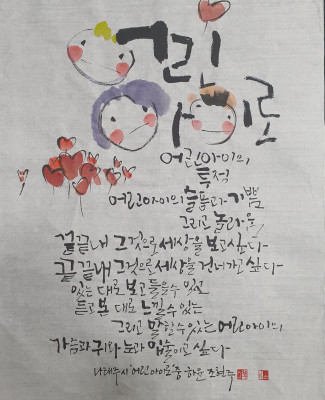 어린
아이로
어린아이의,
어린아이의 슬픔과 기쁨
그리고 놀라움
끝끝내 그것으로 세상을 보고 싶다
끝끝내 그것으로 세상을 건너가고 싶다
있는 대로 보고 들을 수 있고
듣고 본 대로 느낄 수 있는
그리고 말할 수 있는 어린아이의
가슴과 귀와 눈과 입술이고 싶다
나태주 시 '어린아이로' 중 하윤 조현주